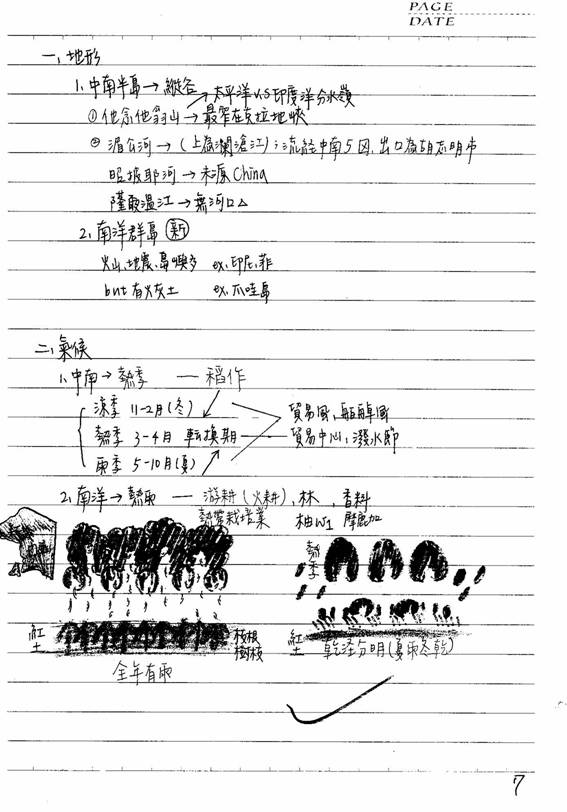 PAGE
DATE
一、地形
1. 中南半島→縱谷
太平洋v.s印度洋分水嶺
①他念他翁山→最窄在克拉地峽
② 湄公河→(上為瀾滄江);流經中南5國,出口為胡志明市
昭披耶河→未源China
薩爾溫江→無河口△
2. 南洋群島 新
火山、地震、島嶼多 ex.印尼、菲
but有火灰土 ex.爪哇島
二、氣候
1. 中南→熱季 — 稻作
涼季 11-2月(冬)
貿易風、船舶風
熱季 3-4月 転換期
貿易中心;潑水節
雨季 5-10月(夏)
2. 南洋→熱雨 — 游耕(火耕)、林、香料
熱帶栽培業 柚W1 摩鹿加
熱季
紅土 板根 樹枝
紅土 乾溼分明(夏雨冬乾)
全年有雨
7